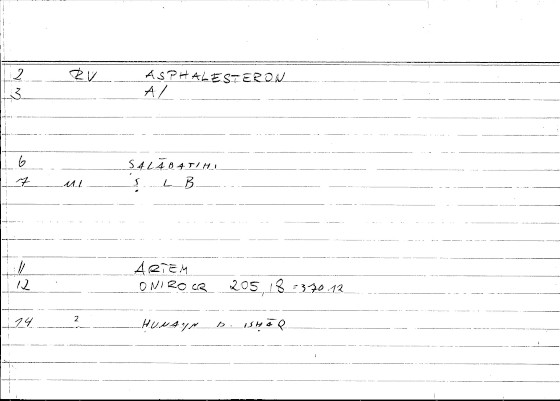 2 RV ASPHALESTERON
3 A/
6 ṢALĀBATIHI
7 MI Ṣ L B
11 ARTEM
12 ONIROCR 205,18 = 370.12
14 2 HUNAYN b. ISḤĀQ